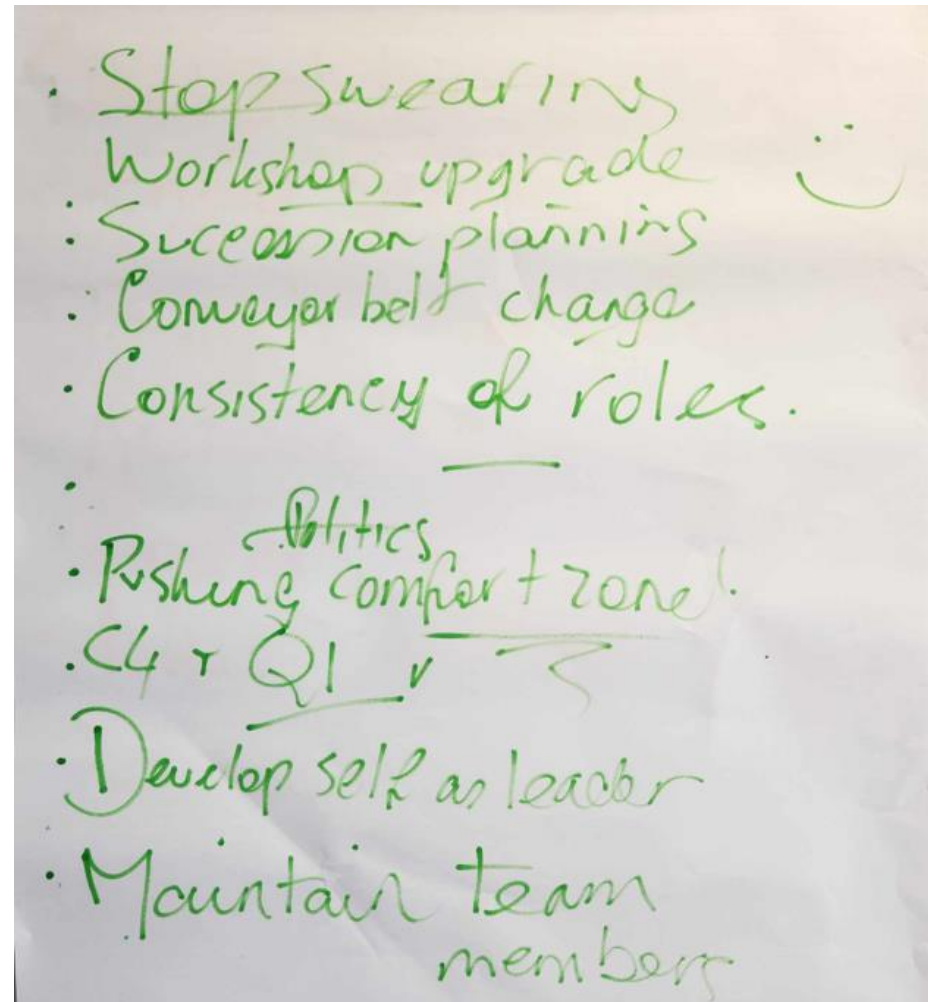 · Stop swearing
Workshop upgrade :)
· Sucession planning
· Conveyor belt change
· Consistency of roles.
Politics
· Pushing comfort zone!
· C4 + Q1
· Develop self as leader
· Maintain team
members